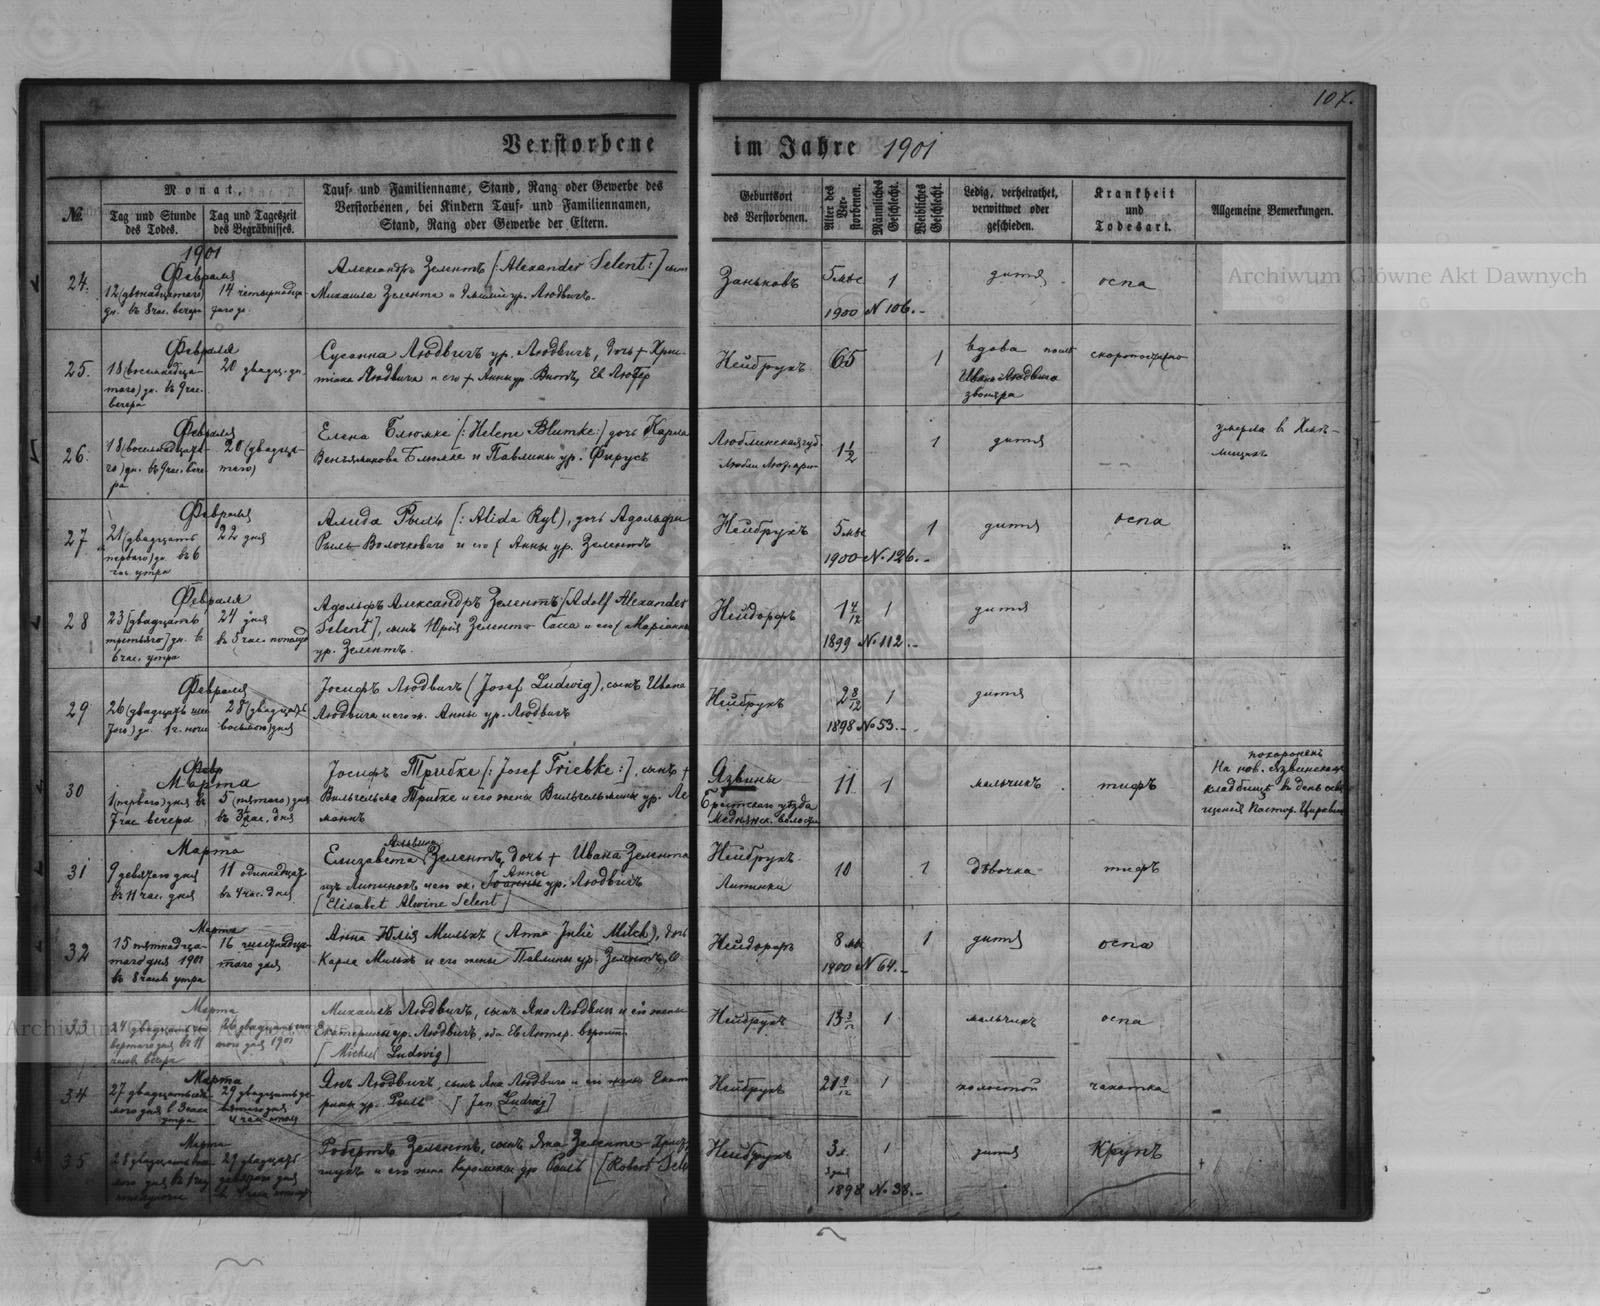 107.
Verstorbene im Jahre 1901
№.
Monat,
Tag und Stunde des Todes.
Tag und Tageszeit des Begräbnisses.
Tauf- und Familienname, Stand, Rang oder Gewerbe des
Verstorbenen, bei Kindern Tauf- und Familiennamen,
Stand, Rang oder Gewerbe der Eltern.
Geburtsort
des Verstorbenen.
Alter des Ver-
storbenen.
Männliches
Geschlecht.
Weibliches
Geschlecht.
Ledig, verheirathet,
verwittwet oder
geschieden.
Krankheit
und
Todesart.
Allgemeine Bemerkungen.
1901
Февраля
24.
12 (двѣнадцатаго)
дн. въ 8 час. вечера
14 четырнадца-
Александръ Зелентъ [: Alexander Selent :] сынъ
Михаила Зелента и Эмилии ур. Людвигъ.
Заньковъ
5 мѣс
1
1900 № 106.-
дитя
оспа
Archiwum Główne Akt Dawnych
Февраля
25.
18 (восемнадца-
таго) дн. въ 9 час.
вечера
20 двадц. дн.
Сусанна Людвигъ ур. Людвигъ, дочь † Хрис-
тіана Людвига и его † Анны ур. Витъ, Ев. Лютер
Нейбрухъ
65
1
вдова послѣ
Ивана Людвига
звонаря
скоропостижно
Февраля
26.
18 (восемнадцата-
го) дн. въ 9 час. вече-
ра
20 (двадца-
таго)
Елена Блюмке [: Helene Blumke :] дочь Карла
Веньямінова Блюмке и Павлины ур. Фирусъ
Люблинская губ.
1 1/2
1
дитя
умерла в Хмѣ-
Февраля
27
21 (двадцать
перваго) дн. въ 6
час. утра
22 дня
Алида Рыль (: Alida Ryl), дочь Адольфа
Рыль Волочковаго и его ж Анны ур. Зелентъ
Нейбрухъ
5 мѣс
1
1900 № 126.-
дитя
оспа
Февраля
28
23 [двадцать
третьяго] дн. в
6 час. утра
24 дня
въ 5 час. пополуд
Адольфъ Александръ Зелентъ [Adolf Alexander
Selent], сынъ Юрія Зелентъ Саса и его ж Маріанны
ур. Зелентъ.
Нейдорфъ
1 4/12
1
1899 № 112.-
дитя
Февраля
29
26 (двадцать шес
того) дн. 1 ч. ночи
28 (двадцать
восьмого) дня
Іосифъ Людвигъ (Josef Ludwig), сынъ Ивана
Людвига и его ж. Анны ур. Людвигъ
Нейбрухъ
2 8/12
1
1898 № 53.-
дитя
Февр
Марта
30
1 (перваго) дня въ
7 час вечера
5 (пятаго) дня
въ 3 1/2 час. дня
Іосифъ Трибке [: Josef Triebke :], сынъ †
Вильгельма Трибке и его жены Вильгельмины ур. Ле
манъ
Язвины
Брестскаго уѣзда
Меднянск. волости
11
1
мальчикъ
тифъ
похороненъ
На нов. Язвинскомъ
кладбищѣ в день освя
щенія Пастор. Цировіи
Марта
31
9 девятого дня
въ 11 час. дня
11 одиннадцат
въ 4 час. дня
Альвин
Елизавета Зелентъ, дочь † Ивана Зелента
изъ Липинокъ и его ж. Анны ур. Людвигъ
[Elisabet Alwine Selent]
Нейбрухъ
Липинки
10
1
дѣвочка
тифъ
Марта
32
15 пятнадца-
таго дня 1901
въ 8 часов утра
16 шестнадца-
таго дня
Анна Юлія Мильхъ (Anna Julie Milch), дочь
Карла Мильхъ и его жены Павлины ур. Зелентъ
Нейдорфъ
8 мѣс
1
1900 № 64.-
дитя
оспа
Archiwum
Марта
33
24 двадцать чет
вертаго дня въ 11
часов вечера
26 двадцать шес
того дня 1901
Михаилъ Людвигъ, сынъ Яна Людвига и его жены
Екатерины ур. Людвигъ, оба Ев. Лютер. вѣроисп.
[Michael Ludwig]
Нейбрухъ
13 3/12
1
мальчикъ
оспа
Марта
34
27 двадцать седь
мого дня в 3 часа
утра
29 двадцать де-
вятого дня
Янъ Людвигъ, сынъ Яна Людвига и его жены Екате
рины ур. Рыль [Jan Ludwig]
Нейбрухъ
21 9/12
1
холостой
чахотка
Марта
35
28 двадцать вось
мого дня въ 1 час
29 двадцать
девятого дня
Робертъ Зелентъ, сынъ Яна Зелента
и его жены Каролины ур. Рыль [Robert Sele
Нейбрухъ
3 г.
1
1898 № 38.-
дитя
Крупъ